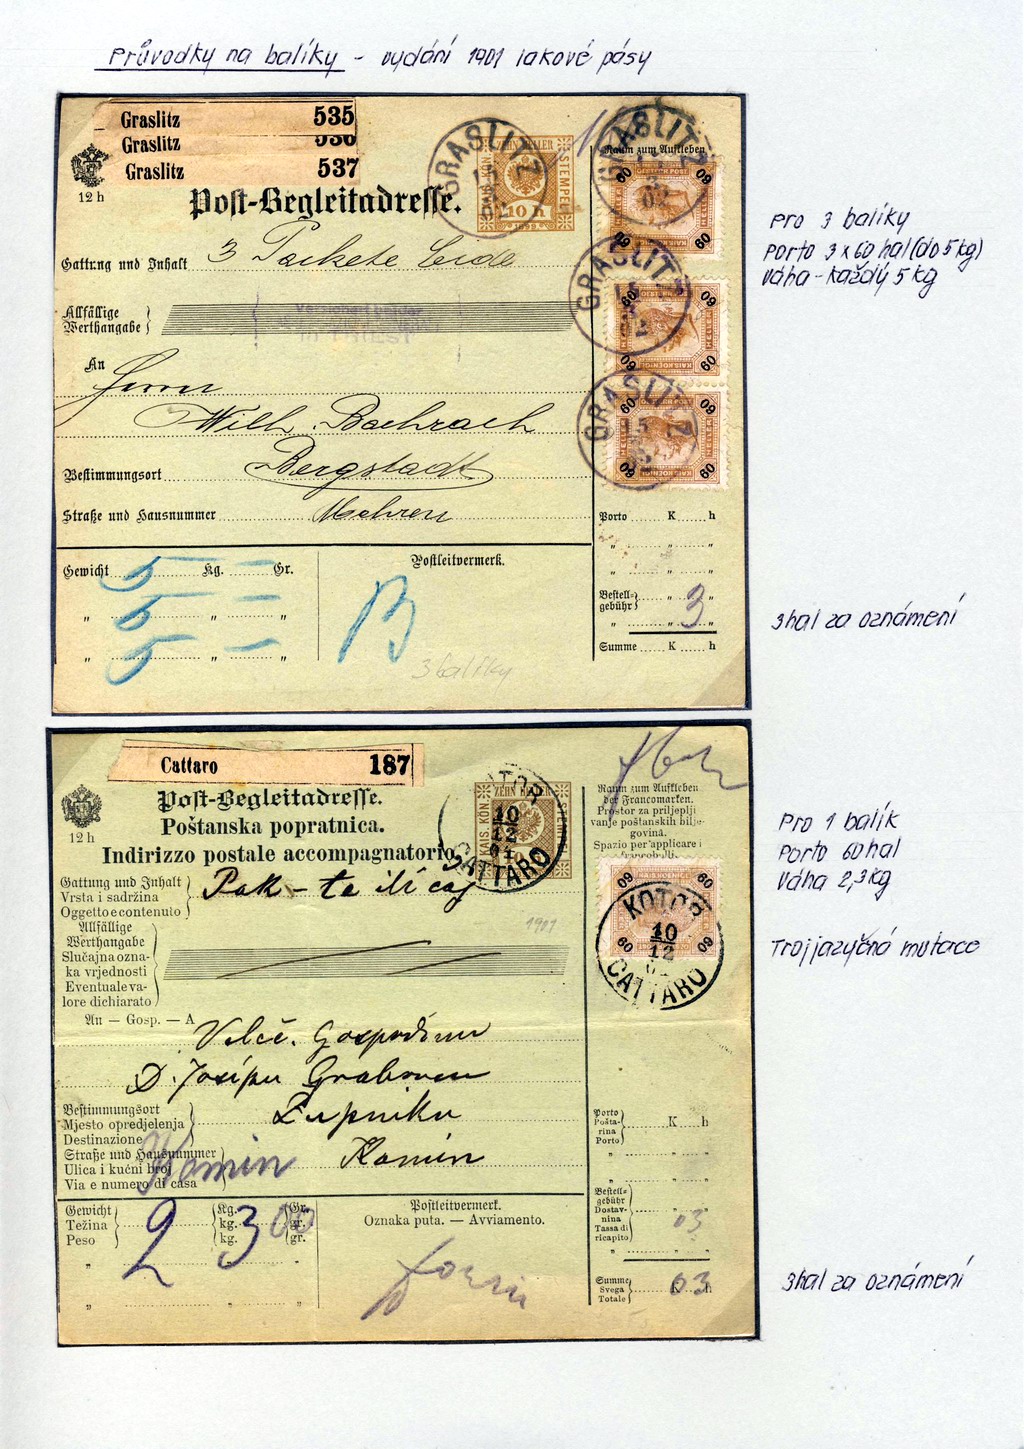 Průvodky na balíky - vydání 1901 lakové pásy
Graslitz 535
Graslitz 536
Graslitz 537
12 h
Post-Begleitadresse.
KAIS. KÖN.
ZEHN HELLER
STEMPEL
10 h
1899
GRASLITZ
15
02
Raum zum Aufkleben
GRASLITZ
02
60 60
60 60
GRASLITZ
15
60 60
60 60
GRASLITZ
15
60 60
60 60
Gattung und Inhalt 3 Packete
Allfällige
Werthangabe
in TRIEST
An
Herrn
Wilh. Bachrach
Bestimmungsort Bergstadt
Straße und Hausnummer Mehren
Porto K h
" " "
" " "
Bestell-
gebühr " "
" " " 3
Summe K h
Gewicht 5 Kg. — Gr.
" 5 " — "
" 5 " — "
Postleitvermerk.
B
3 balíky
pro 3 balíky
porto 3 x 60 hal (do 5 kg)
váha - každý 5 kg
3 hal za oznámení
Cattaro 187
12 h
Post-Begleitadresse.
Poštanska popratnica.
Indirizzo postale accompagnatorio.
KAIS. KÖN.
ZEHN HELLER
KOTOR
10
12
04
CATTARO
Raum zum Aufkleben
der Francomarken.
Prostor za priljeplji
vanje poštanskih bilje-
govina.
Spazio per applicare i
francobolli.
60 60
60 60
KOTOR
10
12
CATTARO
Gattung und Inhalt
Vrsta i sadržina
Oggetto e contenuto
Allfällige
Werthangabe
Slučajna ozna-
ka vrjednosti
Eventuale va-
lore dichiarato
1901
An — Gosp. — A
Velč. Gospodinu
D. Josipu
Župniku
Bestimmungsort
Mjesto opredjelenja
Destinazione
Straße und Hausnummer
Ulica i kućni broj
Via e numero di casa
Komin
Komin
Porto
Pošta-
rina
Porto
K h
" " "
" " "
Bestell-
gebühr
Dostav-
nina
Tassa di
ricapito
03
Summe
Svega
Totale
K h
03
Gewicht
Težina
Peso
2
Kg.
kg.
kg.
300
Gr.
gr.
gr.
" " "
" " "
Postleitvermerk.
Oznaka puta. — Avviamento.
pro 1 balík
porto 60 hal
váha 2,3 kg
trojjazyčná mutace
3 hal za oznámení